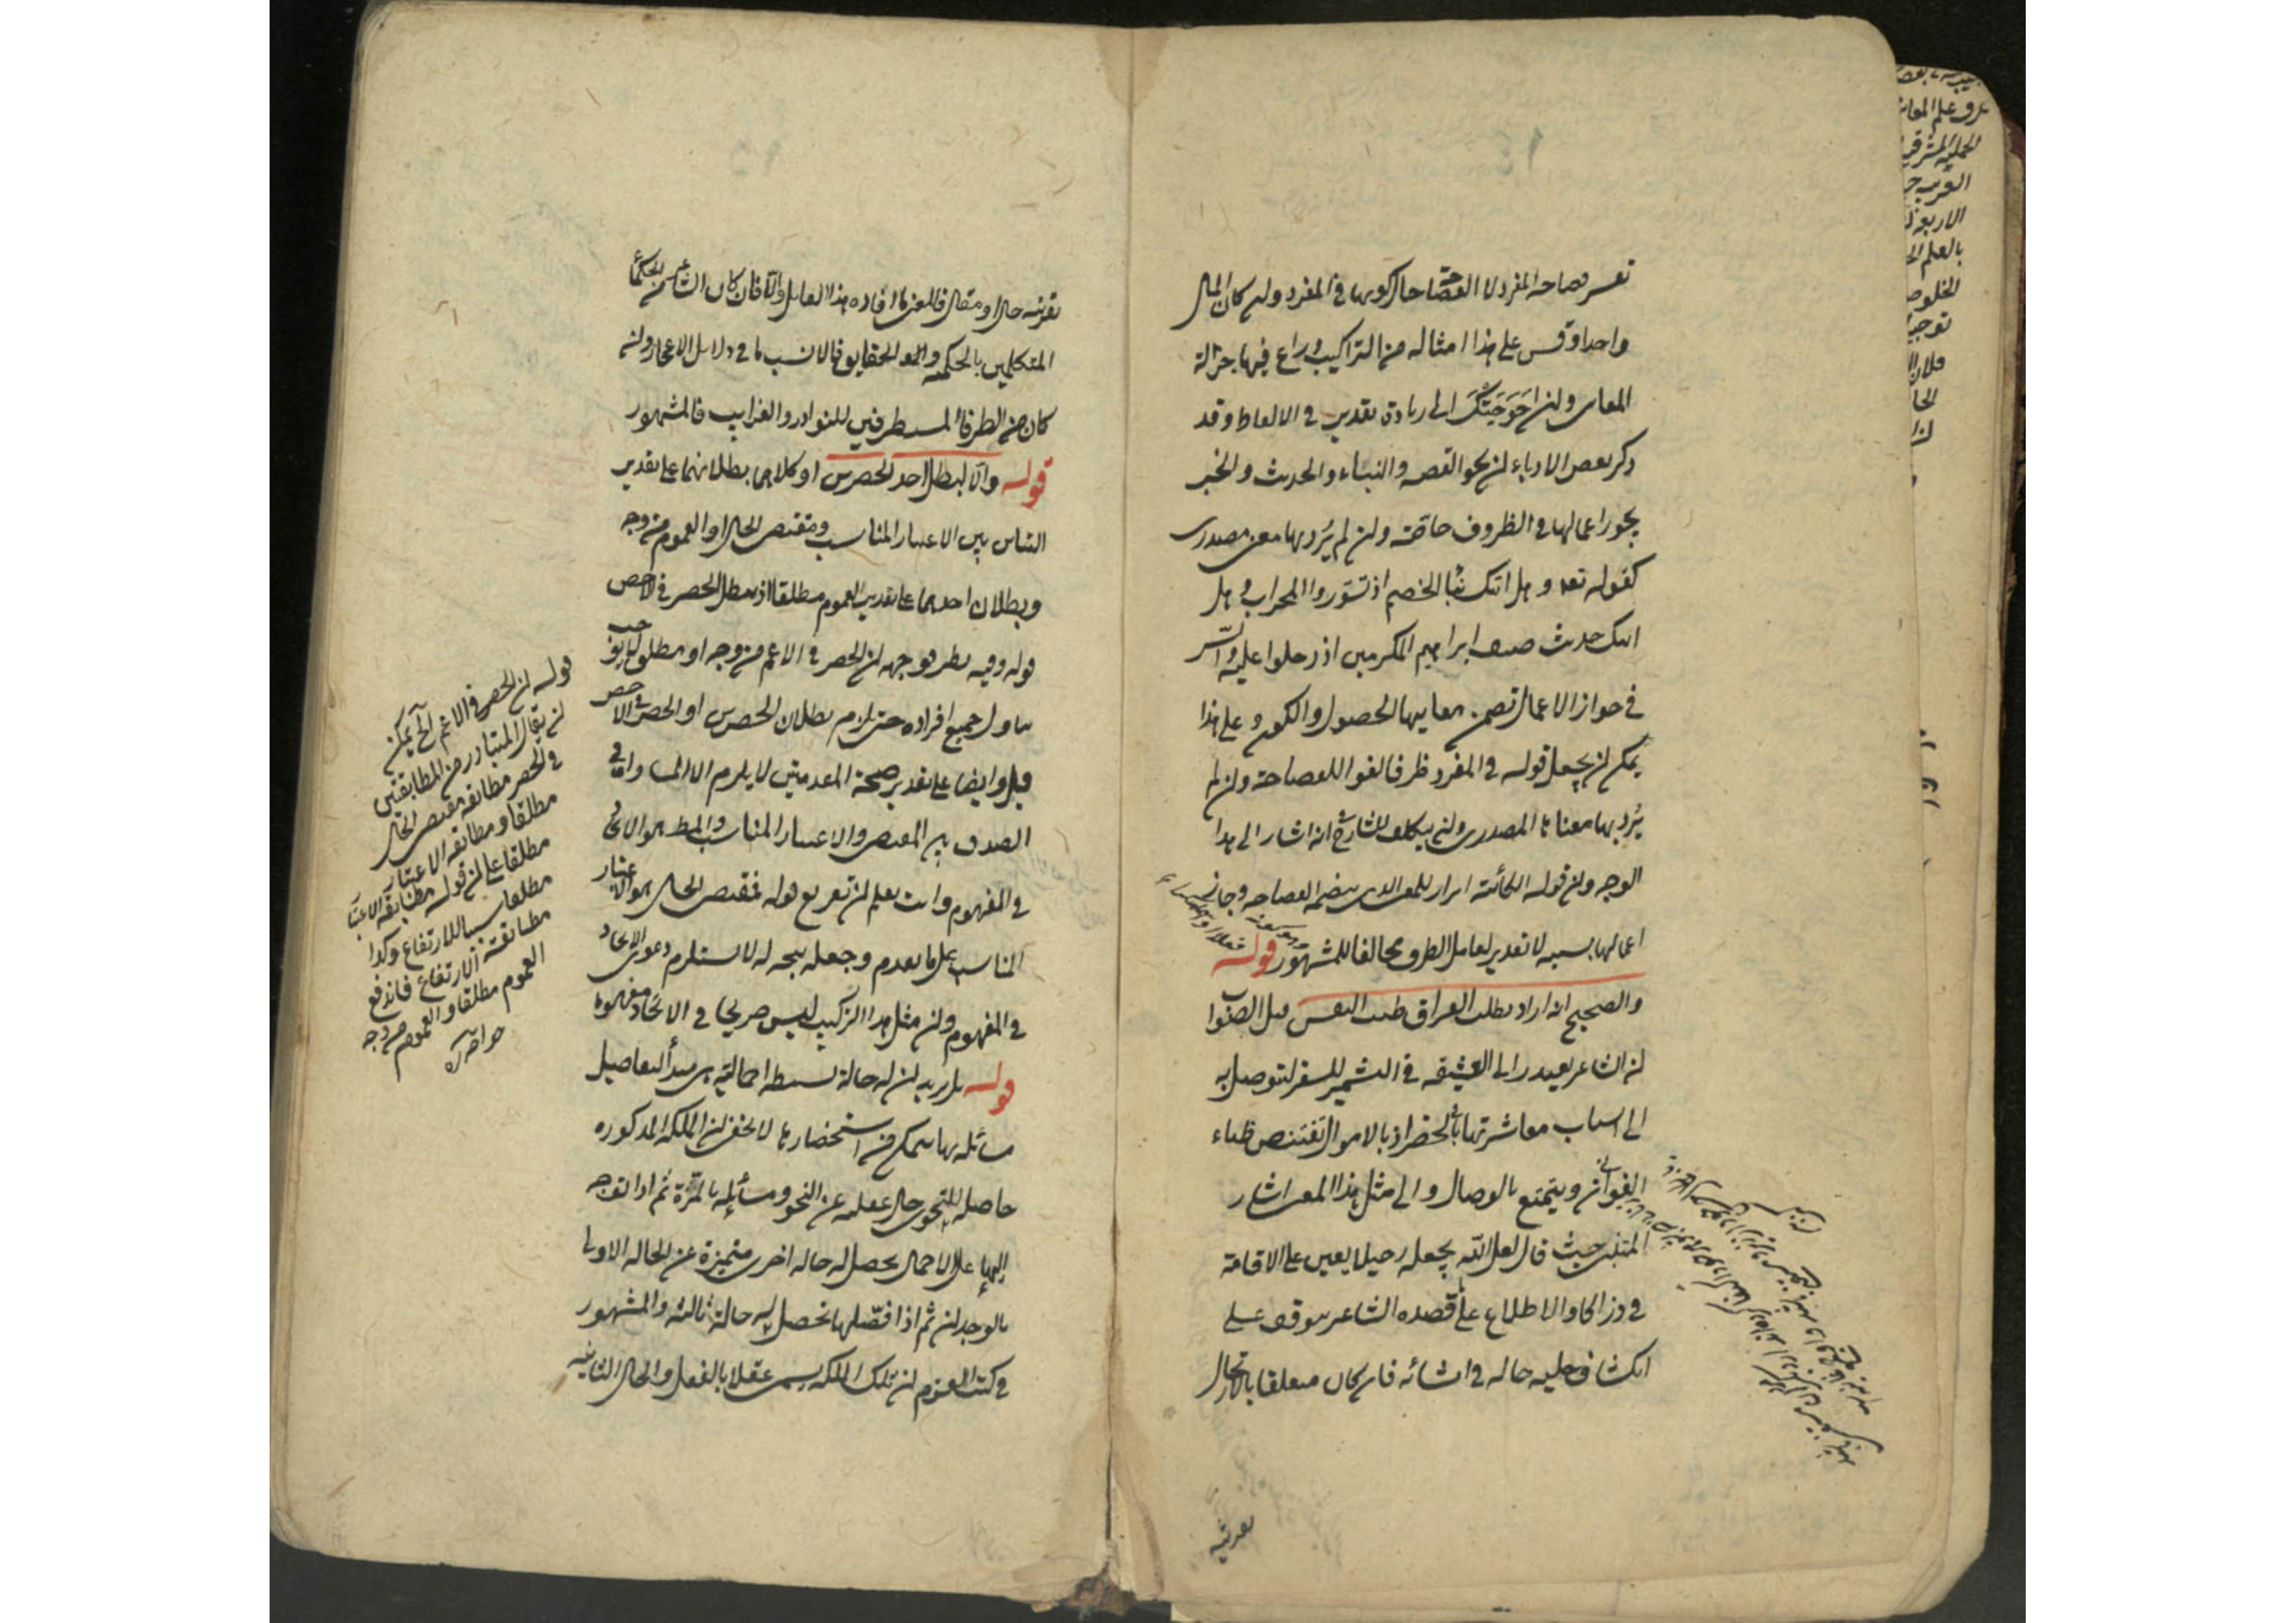 تفسير فصاحة المفرد لا الفصاحة حال كونها في المفرد ولن كان المآل
واحدا وقس على هذا امثاله من التراكيب وراع فيها جزالة
المعاني ولن احوجتك الى زيادة تقدير في الالفاظ وقد
ذكر بعض الادباء لن نحو القصة والنباء والحديث والخبر
يجوز اعمالها في الظروف خاصة ولن لم يرد بها معنى مصدري
كقوله تعه وهل اتيك نبأ الخصم اذ تسوروا المحراب وهل
اتيك حديث ضيف ابراهيم المكرمين اذ دخلوا عليه والسر
في جواز الاعمال تضمن معانيها الحصول والكون وعلى هذا
يمكن لن يجعل قوله في المفرد ظرفا لغوا للفصاحة ولن لم
يرد بها معناها المصدري ولن يتكلف للشارح انه اشار الى هذا
الوجه ولن قوله الكائنة ابراز للمعنى الذي يتضمنه الفصاحة وجاز
اعمالها بسببه لا تقدير لعامل الظرف مخالفا للمشهور قوله
والصحيح انه اراد بطلب الفراق طيب النفس قيل الصواب
لن الشاعر يعتذر الى العشيقة في التشمير للسفر لتوصل به
الى اسباب معاشرتها في الحضر اذ بالاموال تقتنص ظباء
الغواني ويتمتع بالوصال والى مثل هذا المعنى اشار
المتنبي حيث قال لعل الله يجعله رحيلا يعين على الاقامة
في ذراكا والاطلاع على ما قصده الشاعر يتوقف على
انكشاف جلية حاله في انشائه فان كان متعلقا بالارتحال
بقرينة
بقرينة حال او مقال فالمعنى ما افاده هذا القايل والا فان كان الشاعر من الحكماء
المتكلمين بالحكمة والحقايق فالانسب ما في دلايل الاعجاز ولن
كان من الظرفاء المستطرفين للنوادر والغرايب فالمشهور
قوله والا لبطل احد الحصرين او كلاهما بطلانهما على تقدير
التباين بين الاعتبار المناسب ومقتضى الحال او العموم من وجه
وبطلان احدهما على تقدير العموم مطلقا اذ يبطل الحصر في الاخص
قوله وفيه نظر توجيهه لن الحصر في الاعم من وجه او مطلقا لا يوجب
تناول جميع افراده حتى يلزم بطلان الحصرين او الحصر في الاخص
قيل وايضا على تقدير صحة المقدمتين لا يلزم الا المساواة في
الصدق بين المقتضى والاعتبار المناسب والمط هو الاتحاد
في المفهوم وانت تعلم لن تفريع قوله فمقتضى الحال هو الاعتبار
المناسب على ما تقدم وجعله نتيجة له لا يستلزم دعوى الاتحاد
في المفهوم ولن مثل هذا التركيب ليس صريحا في الاتحاد مفهوما
قوله بل اريد لن له حالة بسيطة اجمالية هي مبدأ لتفاصيل
مسائله بها يتمكن من استحضارها لا يخفى لن الملكة المذكورة
حاصلة للنحوي حال غفلته عن النحو ومسائله بالمرة ثم اذا توجه
اليها على الاجمال يحصل له حالة اخرى متميزة عن الحالة الاولى
بالوجدان ثم اذا فصلها تحصل له حالة ثالثة والمشهور
في كتب القوم لن تلك الملكة يسمى عقلا بالفعل والحال الثانية
قوله لن الحصر في الاعم الخ يمكن
لن يقال المتبادر من المطابقتين
في الحصر مطابقة مقتضى الحال
مطلقا ومطابقة الاعتبار
مطلقا على لن قوله مطابقة الاعتبار
مطلقا سببا للارتفاع وكذا
مطابقته الارتفاع فاندفع
العموم مطلقا والعموم من وجه